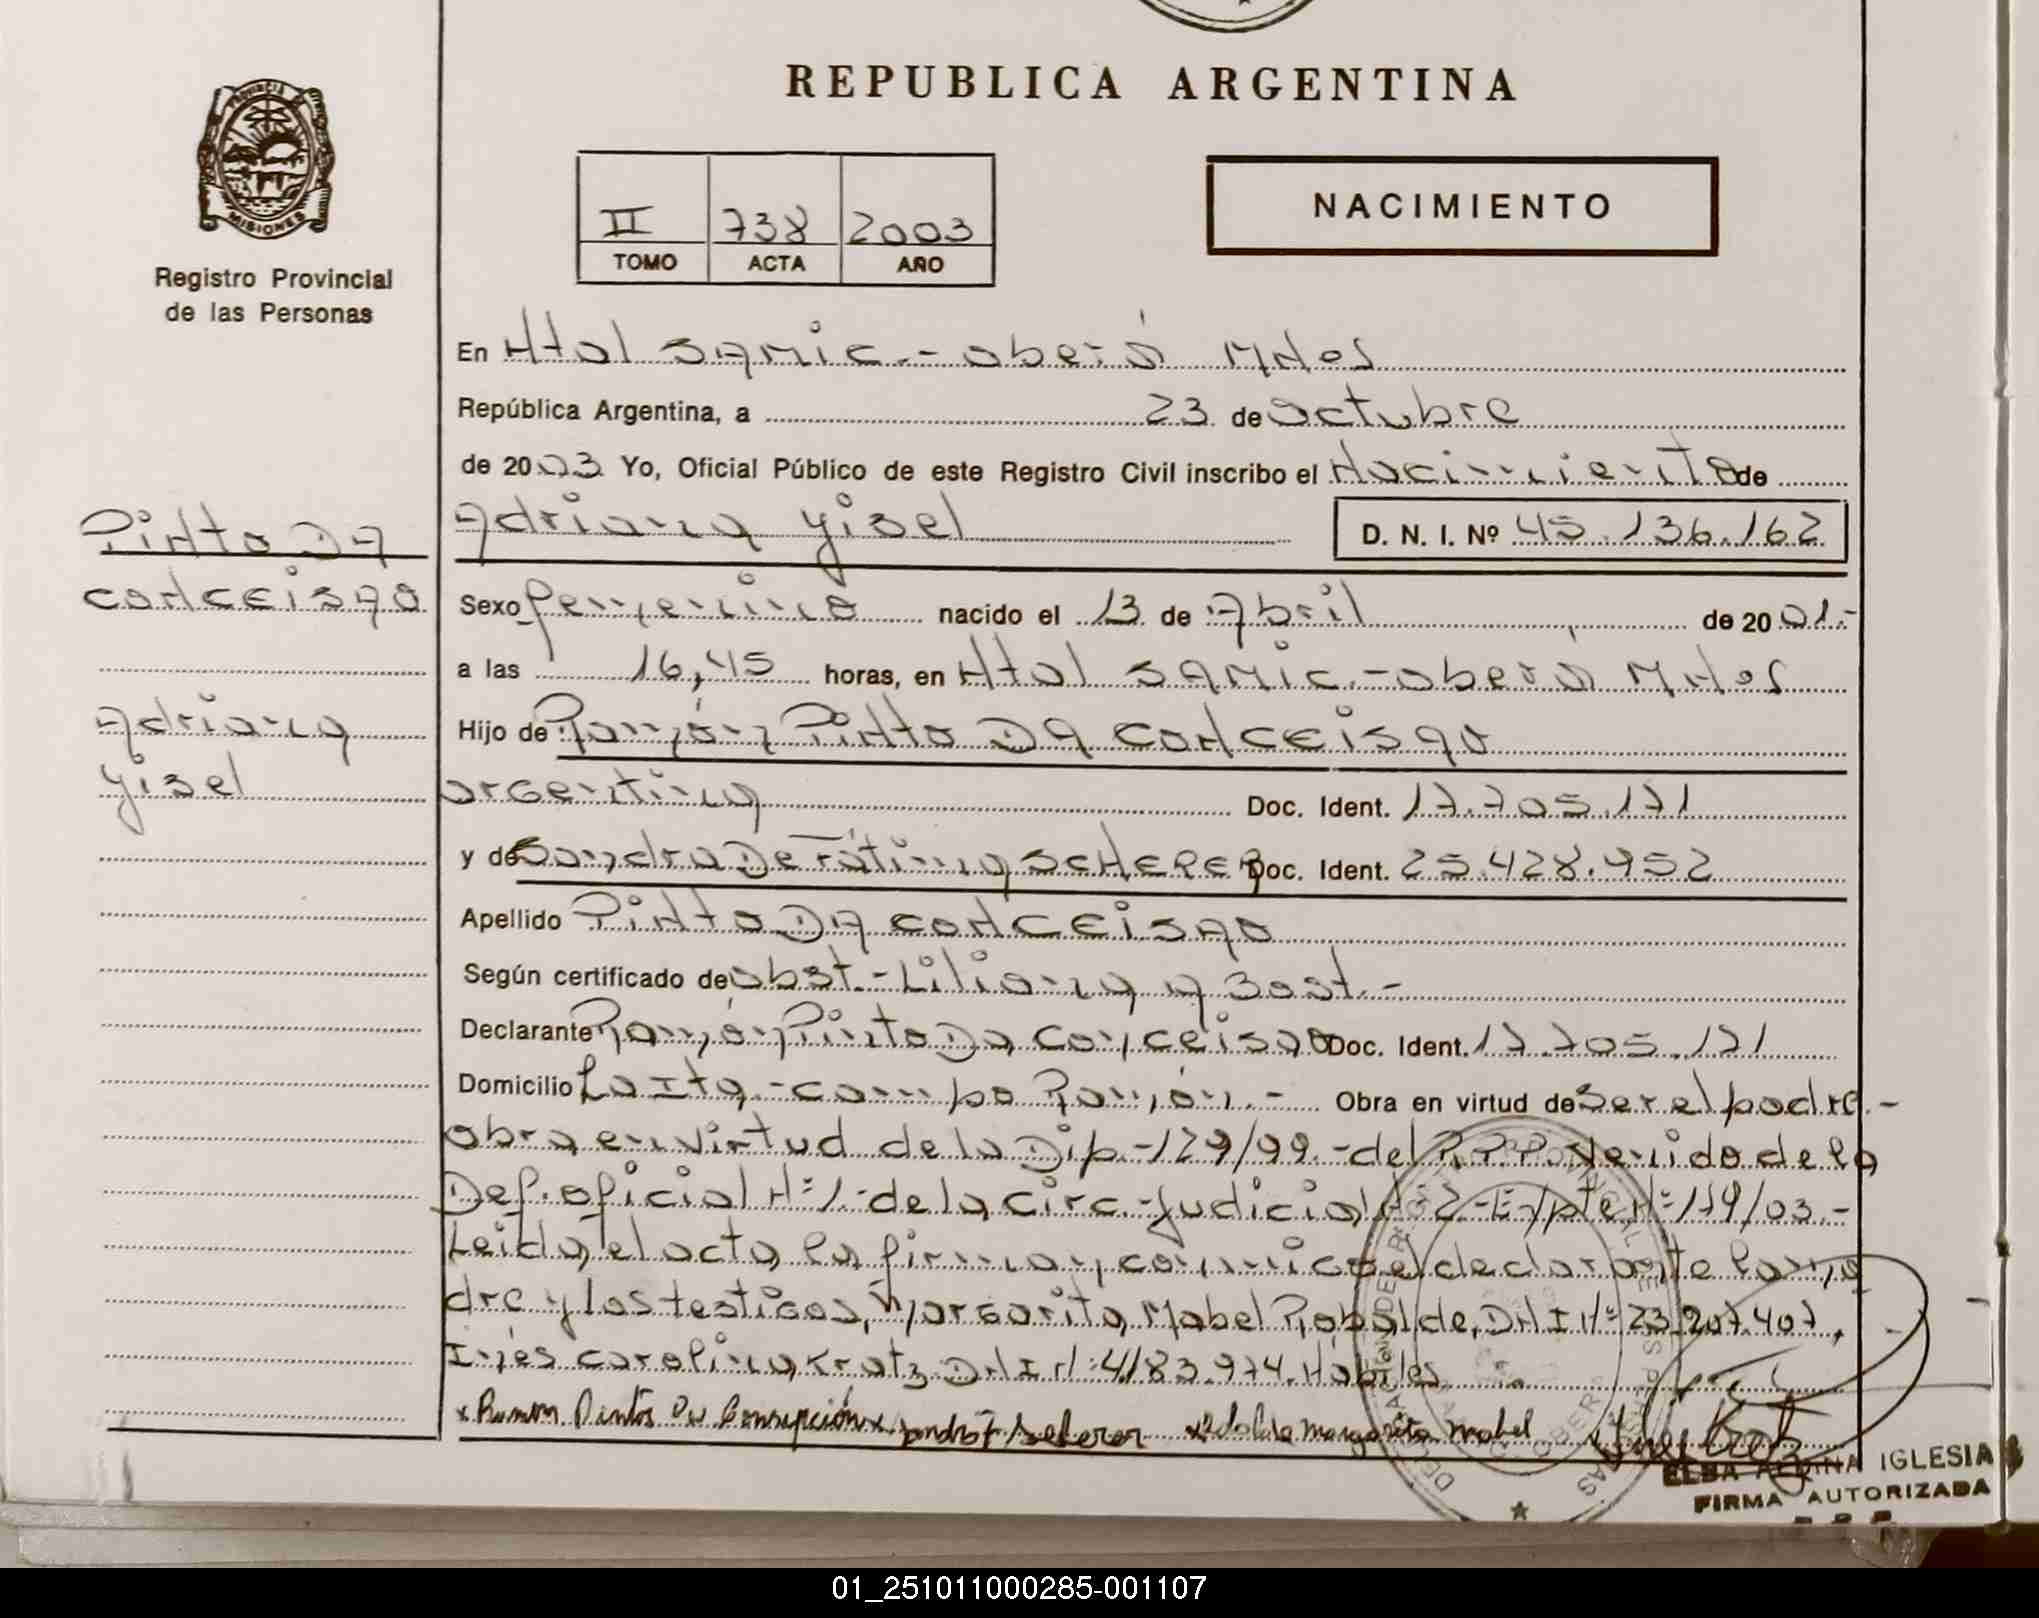 REPUBLICA ARGENTINA
PROVINCIA DE
MISIONES
Registro Provincial
de las Personas
II 738 2003
TOMO ACTA AÑO
NACIMIENTO
En Htal SAMIC.- oberá MNes
República Argentina, a 23 de octubre
de 2003 Yo, Oficial Público de este Registro Civil inscribo el Nacimiento de
PiNto DA
coNCEisao
Adriana
yisel
Adriana yisel D. N. I. Nº 45.136.162
Sexo femenino nacido el 13 de Abril de 2001.-
a las 16,45 horas, en Htal SAMic.- oberá MNes
Hijo de Ramón PiNto DA coNCEisao
argentina Doc. Ident. 17.705.171
y de Sandra De Fátima SCHERER Doc. Ident. 25.428.952
Apellido PiNto DA coNCEisao
Según certificado de obst.- Liliana A Bast.-
Declarante Ramón Pinto Da Conceisao Doc. Ident. 17.705.171
Domicilio La Ita.- campo Ramón.- Obra en virtud de Ser el padre.-
obra en virtud de la Dip.-129/99.- del R.P.P. Venido de la
Def. oficial N=1.- de la circ.- Judicial N=2.- Expte N=179/03.-
Leida el acta, la firman conmigo el declarante la ma
dre y los testigos, Margarita Mabel Robalde, DNI N=23.207.407,
Inés carolina Kratz DNI N=4183.974. Hábiles
x Ramon Pintos Da Consepción x Sandra F Scherer x Robalde Margarita Mabel Ines Kratz
OBERA
ELBA IGLESIA
FIRMA AUTORIZADA
01_251011000285-001107